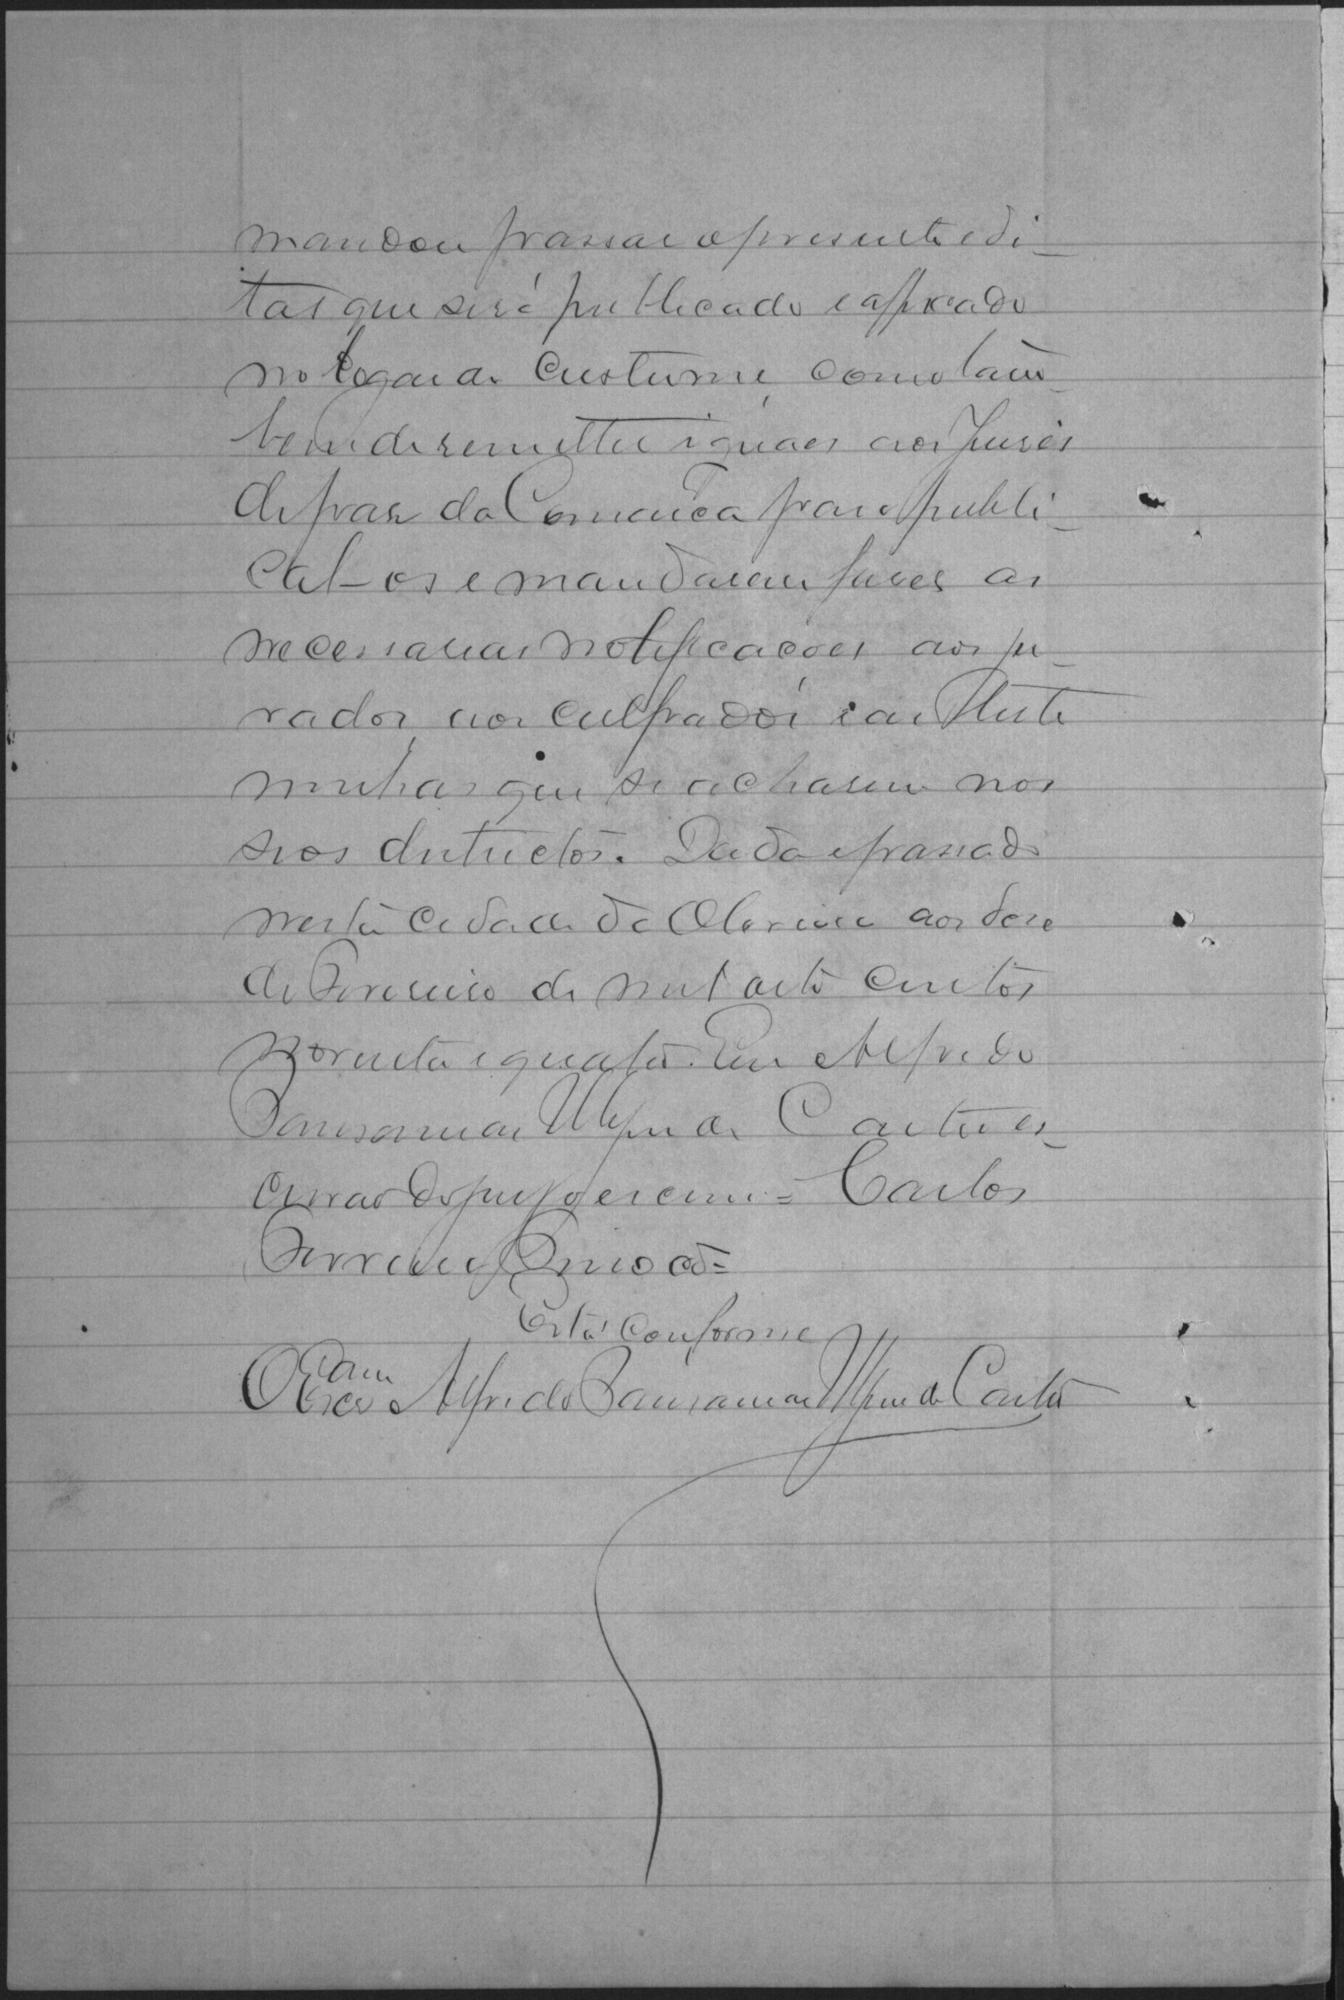 mandou passar o presente edi-
tal que será publicado e affixado
no logar do custume, como tam-
bem de remetter iguaes aos Juises
de paz da Comarca para publi-
cal-os e mandarem fazer as
necessarias notificações aos ju-
rados, aos culpados e as teste
munhas que se acharem nos
seos districtos. Dado e passado
nesta cidade de aos dose
de Fevereiro de mil oito centos
noventa e quatro. Eu Alfredo
de Castro es-
crivão do jury o escrevi = Carlos
Ferreira
Está conforme
O Escam Alfredo de Castro